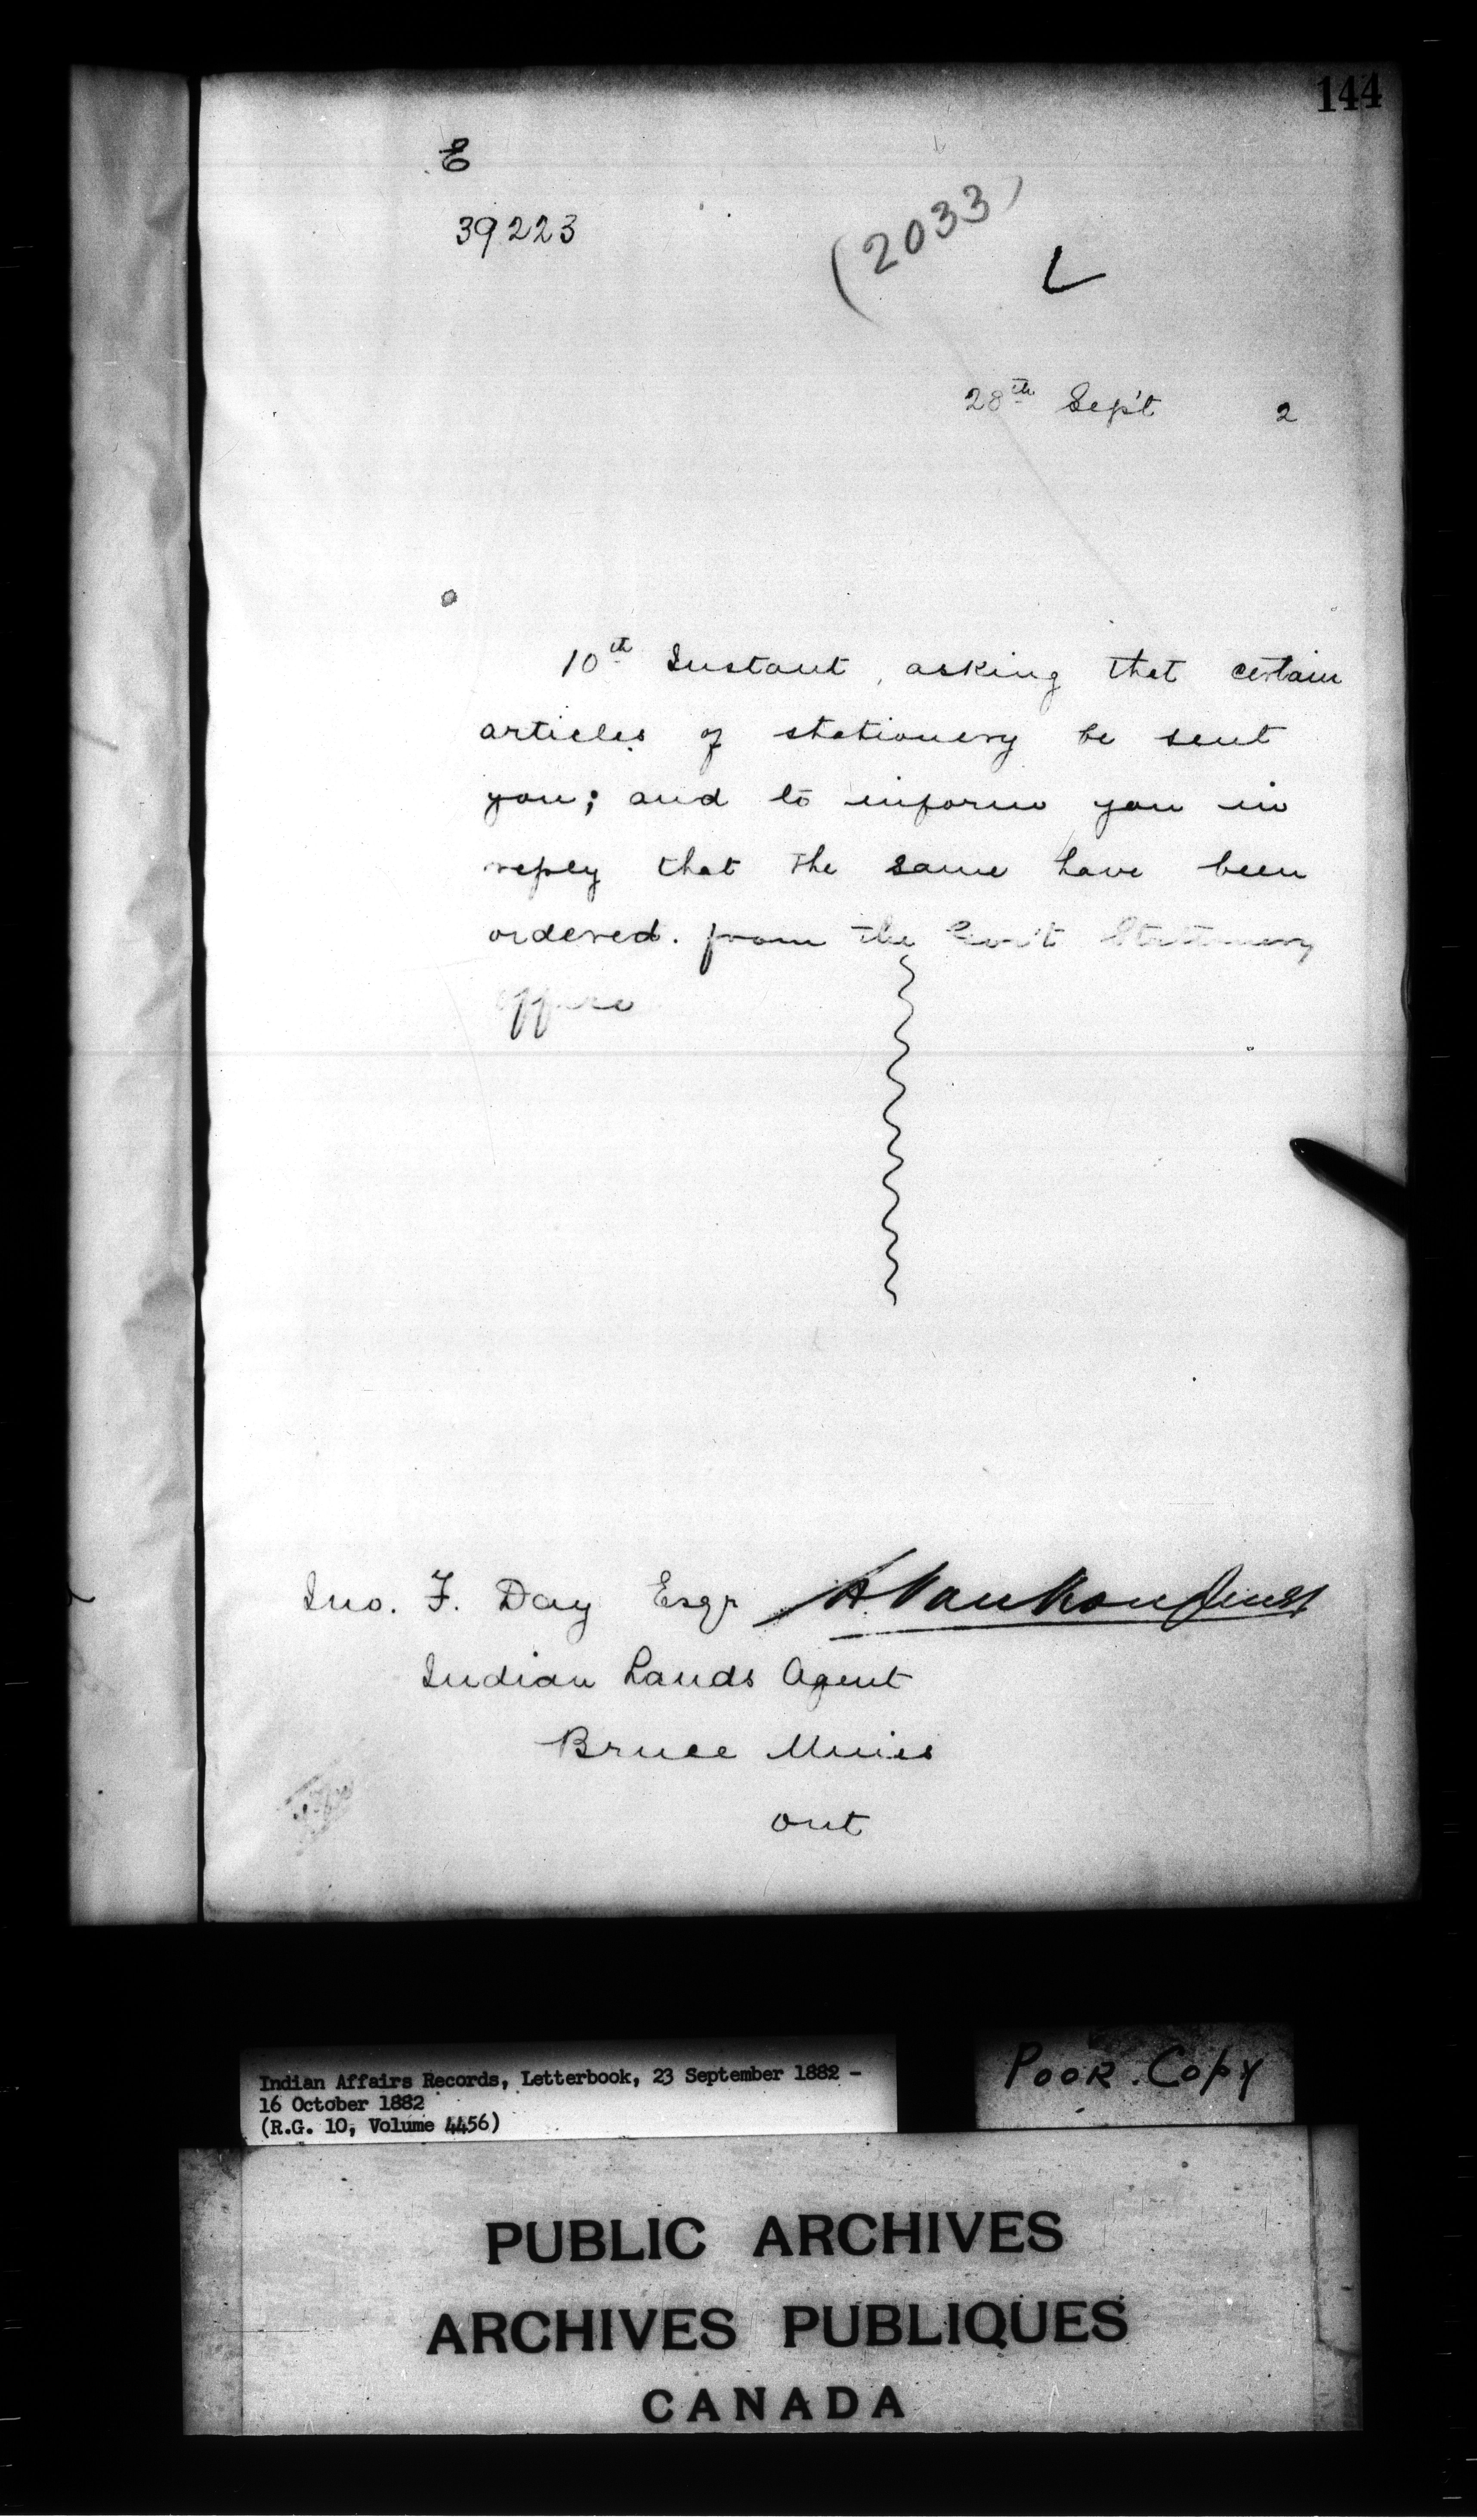 144
E
39223
(2033)
L
28th Sept 2
10th Instant, asking that certain
articles of stationery be sent
you; and to inform you in
reply that the same have been
ordered. from the Gov't Stationery
office
Jno. F. Day Esqr L. Vankoughnet
Indian Lands Agent
Bruce Mines
Ont
Indian Affairs Records, Letterbook, 23 September 1882 -
16 October 1882
(R.G. 10, Volume 4456)
POOR. Copy
PUBLIC ARCHIVES
ARCHIVES PUBLIQUES
CANADA